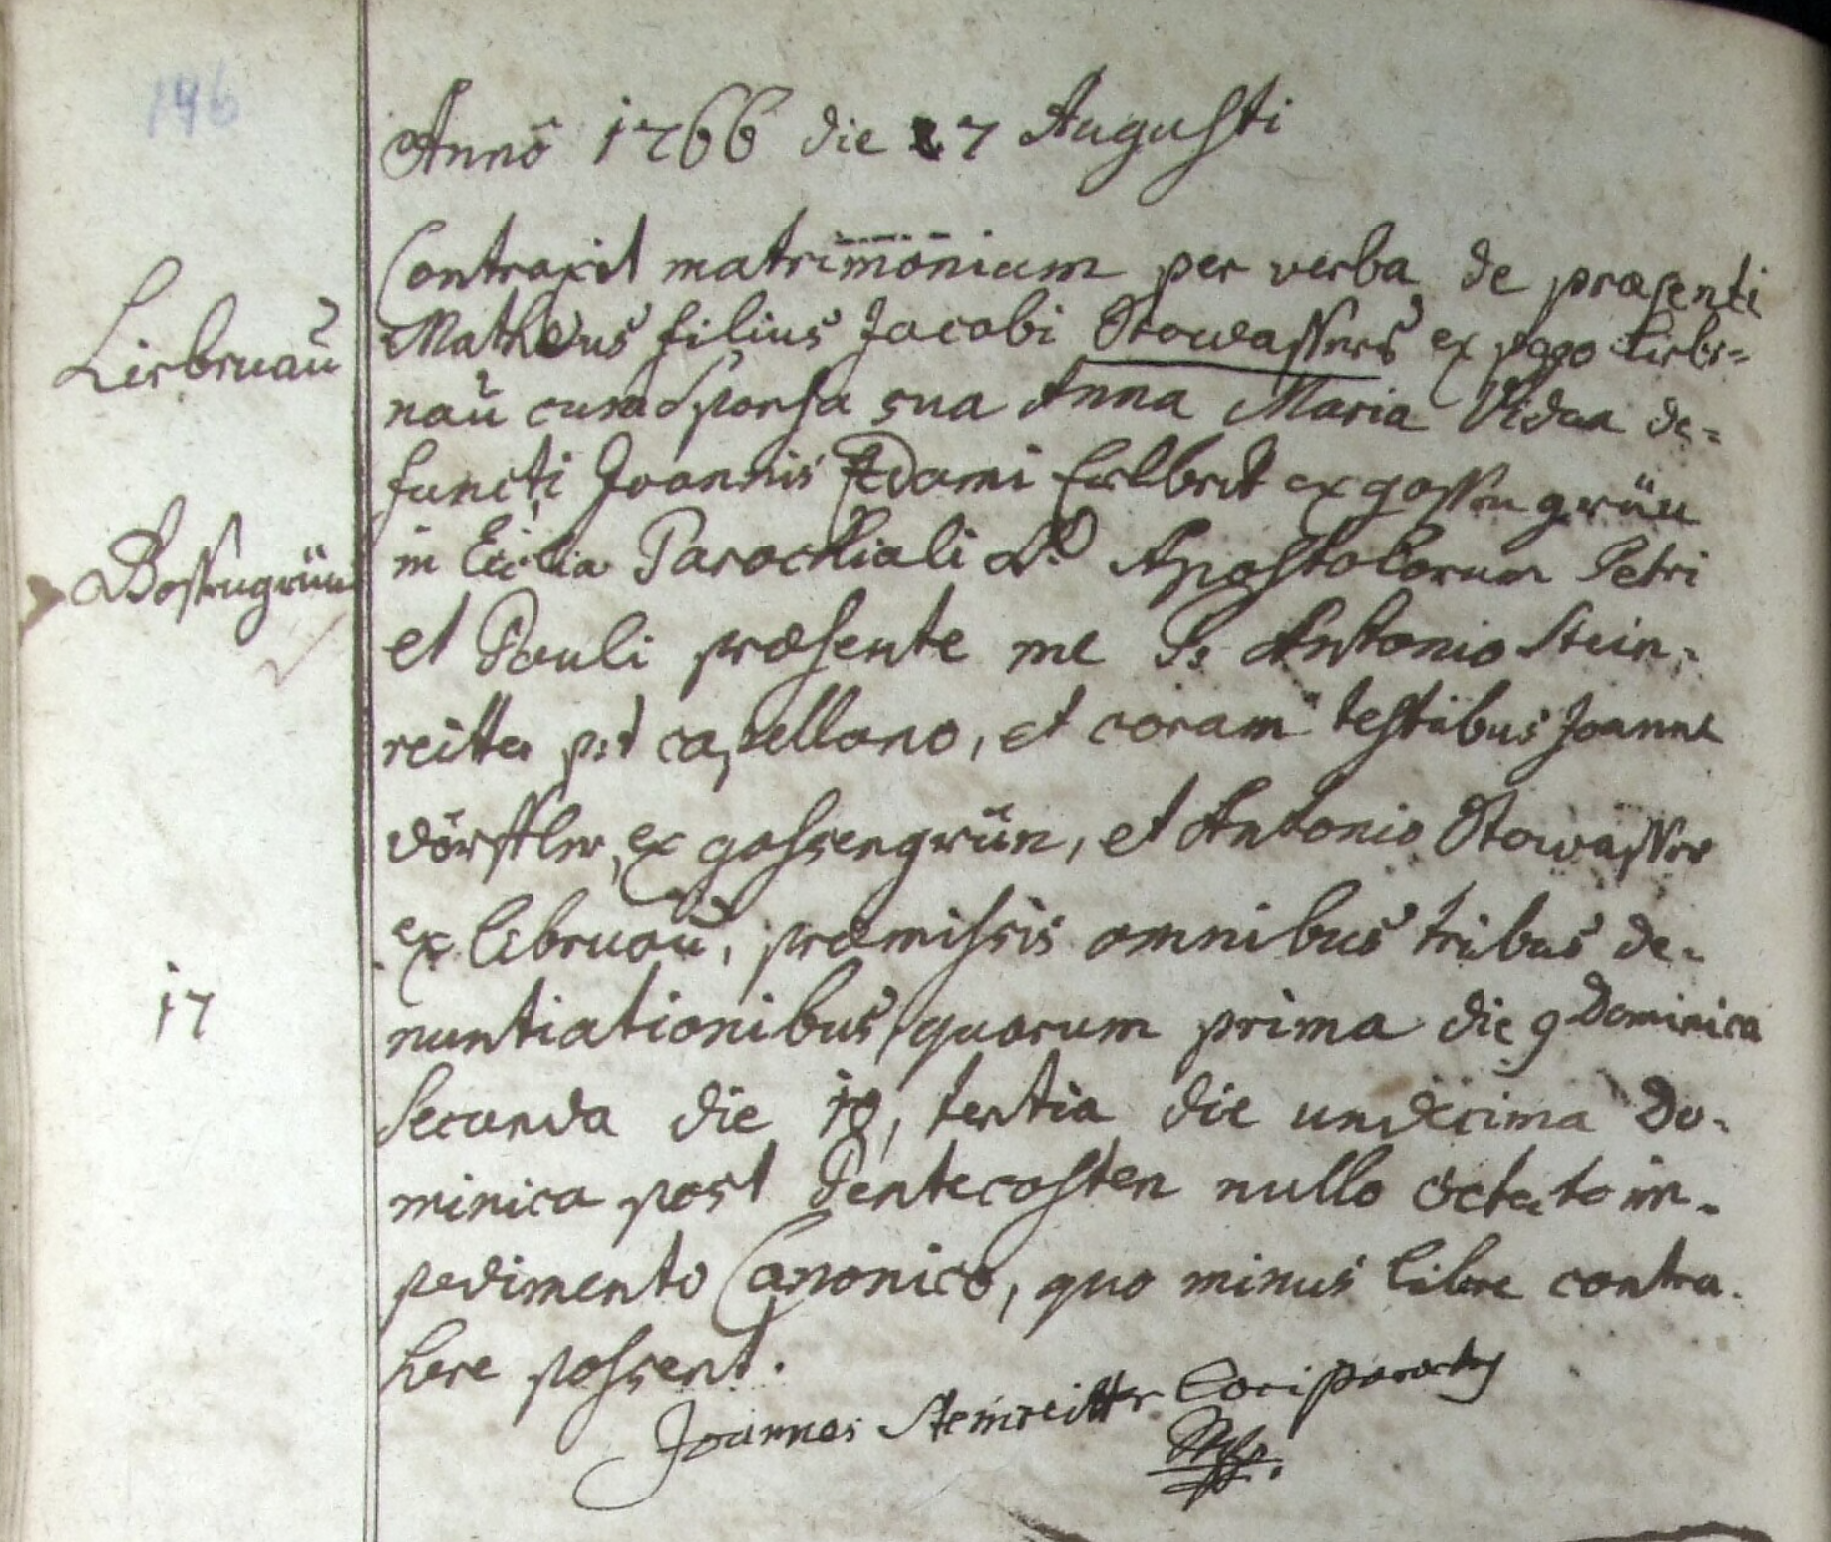 146
Anno 1766 die 27 Augusti
Contraxit matrimonium per verba de præsenti
Liebnau
Matheus filius Jacobi Stowassers ex pago Lieb-
nau cum Sponsa sua Anna Maria Vidua de-
functi Joannis Adami ex gossengrün
Gossengrün
in Ecclia Parochiali SS. Apostolorum Petri
et Pauli præsente me P. Antonio Stein-
reitter p:t capellano, et coram testibus Joanne
dörffler, ex gossengrün, et Antonio Stowasser
ex libnau, præmissis omnibus tribus de-
17
nuntiationibus, quarum prima die 9 Dominica
Secunda die 10, tertia die undecima Do-
minica post Pentecosten nullo detecto im-
pedimento Canonico, quo minus libere contra-
here possent.
Joannes Steinreitter Loci parochus